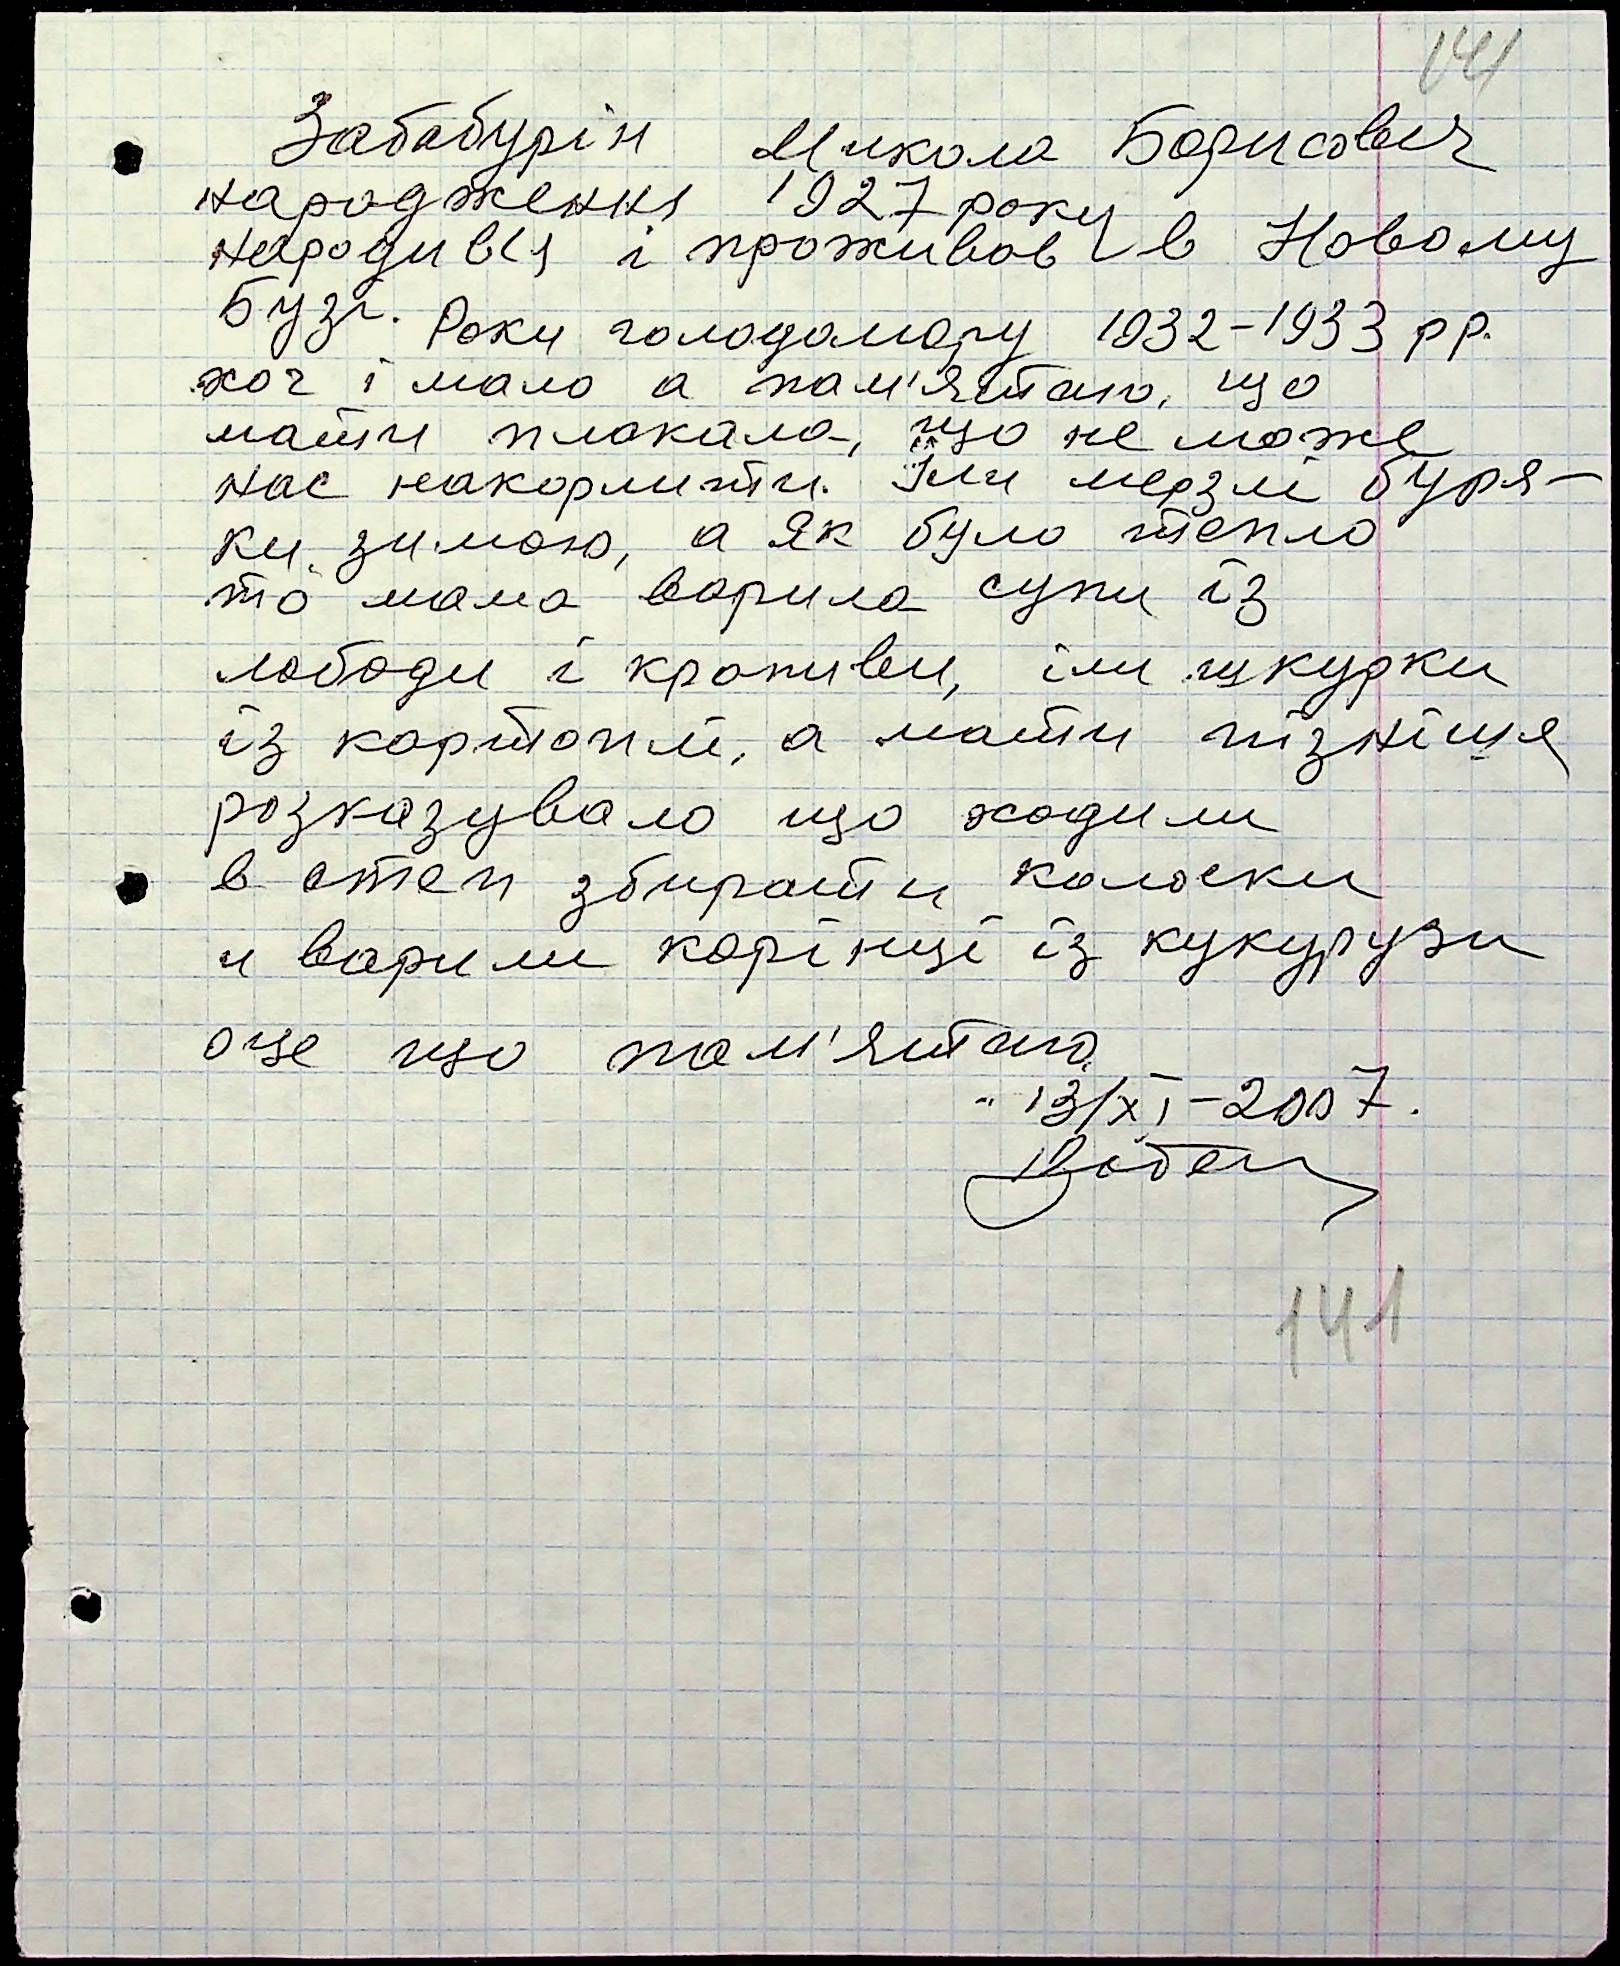 141
Забабурін Микола Борисович
народження 1927 року
народився і проживав в Новому
Бузі. Роки голодомору 1932-1933 рр.
хоч і мало а пам'ятаю, що
мати плакала, що не може
нас накормити. Їли мерзлі буря-
ки зимою, а як було тепло
то мама варила супи із
лободи і кропиви, їли шкурки
із картоплі, а мати пізніше
розказувала що ходили
в степ збирати колоски
и варили корінці із кукурузи
оце що пам'ятаю.
13/XI-2007.
141